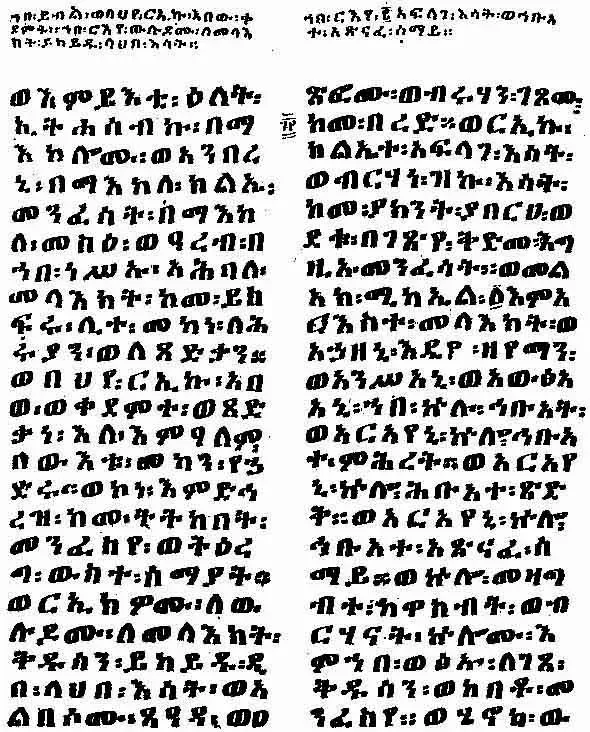 ኀበ፡ይብል፡ወበህየ፡ርኢኩ፡አበው፡ቀ
ደምት፡ወኀበ፡ርእየ፡ውሉደሙ፡ለመላእ
ክት፡ይከይዱ፡ላህበ፡እሳት።
ወእምይእቲ፡ዕለት፡
ኢተሐሰብኩ፡በማ
እከሎሙ።ወአንበረ
ኒ፡በማእከለ፡ክልኤ፡
መንፈሳት፡በማእከ
ለ፡መስዕ፡ወዓረብ፡በ
ኀበ፡ነሥኡ፡አሕባለ፡
መላእክት፡ከመ፡ይስ
ፍሩ፡ሊተ፡መካነ፡ለኅ
ሩያን፡ወለጻድቃን።
ወበህየ፡ርኢኩ፡አበ
ው፡ወቀደምተ፡ወጻድ
ቃነ፡እለ፡እምዓለም፡
በውእቱ፡መካን፡የኀ
ድሩ።ወኮነ፡እምድኅ
ረዝ፡ከመ፡ትትከበት፡
መንፈስየ፡ወትዕረ
ግ፡ውስተ፡ሰማያት።
ወርኢክዎሙ፡ለው
ሉደሙ፡ለመላእክት፡
ቅዱሳን፡ይከይዱ፡ዲ
በ፡ላህበ፡እሳት፡ወአ
ልባሶሙ፡ጸዓዳ፡ወዐ
ኀበ፡ርእየ፡፪አፍላገ፡እሳት፡ወኅቡአ
ተ፡አጽናፈ፡ሰማይ።
ጽፎሙ።ወብሩሃን፡ገጾሙ፡
ከመ፡በረድ።ወርኢኩ፡
ክልኤተ፡አፍላገ፡እሳት፡
ወብርሃነ፡ዝኩ፡እሳት፡
ከመ፡ያክንት፡ያበርህ፡ወ
ደቁ፡በገጽየ፡ቅድመ፡እግ
ዚአ፡መንፈሳት።ወመል
አክ፡ሚካኤል፡፩እምአ
ርእስተ፡መላእክት፡ወ
አኀዘኒ፡እዴየ፡ዘየማን፡
ወአንሥአኒ፡ወአውፅአ
አኒ፡ኀበ፡ኵሉ፡ኅቡአት፡
ወአርአየኒ፡ኵሎ፡ኅቡአ
ተ፡ምሕረት።ወአርአየ
ኒ፡ኵሎ፡ኅቡአተ፡ጽድ
ቅ።ወአርአየኒ፡ኵሎ፡
ኅቡአተ፡አጽናፈ፡ሰ
ማይ።ወኵሎ፡መዛግ
ብተ፡ከዋክብት፡ወብ
ርሃናት፡ኵሎሙ፡እ
ምኀበ፡ወፅኡ፡ለገጸ፡
ቅዱሳን፡ወከበቶ፡መ
ንፈስየ።ወሄኖክ፡ው